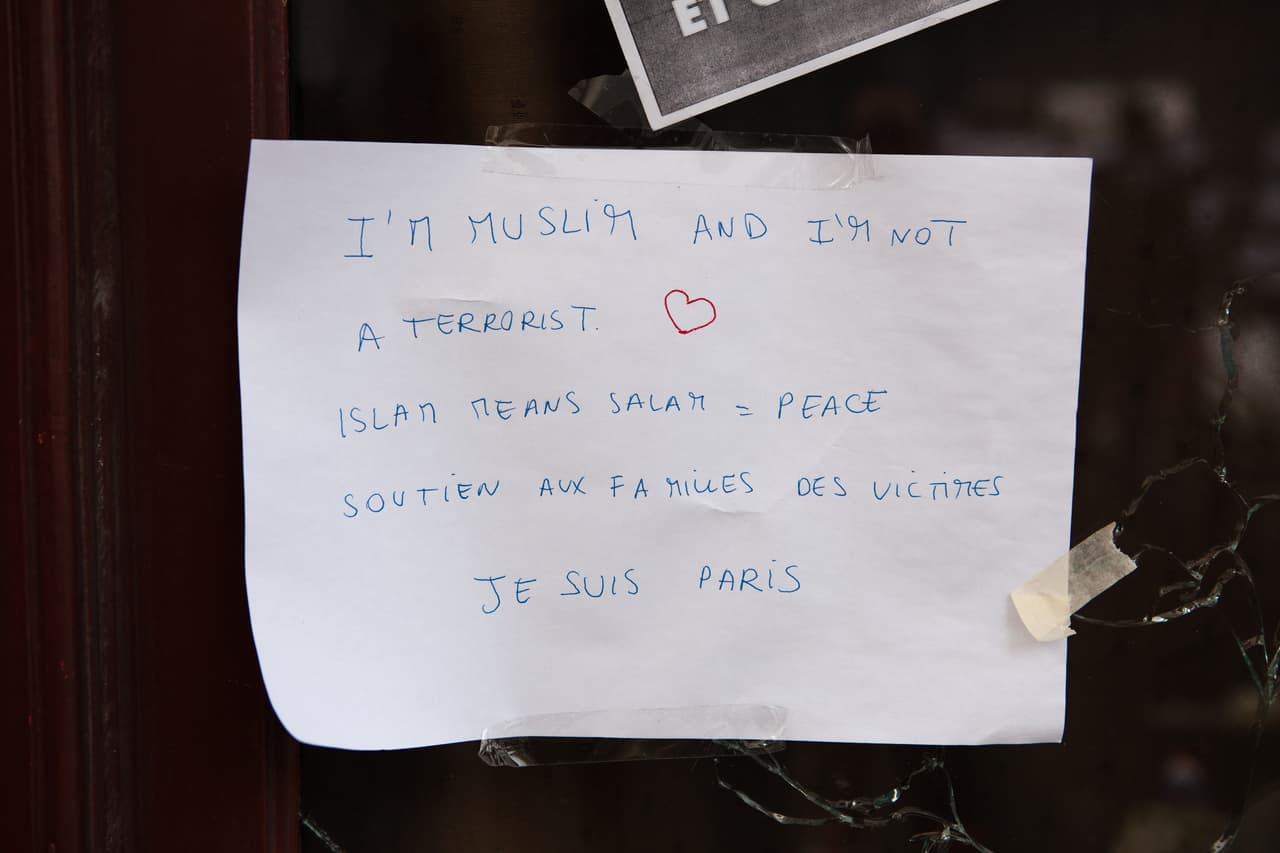 ET
I'M MUSLiM AND I'M NOT
A TERRORIST.
ISLAM MEANS SALAM = PEACE
SOUTiEN AUX FAMiLLES DES ViCTiMES
JE SUIS PARiS